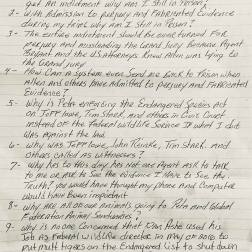 get an indictment why am I still in Prison?
2- with Admission to perjury and Fabricated Evidence
during my trial why am I still in Prison?
3- The entire indictment should be over turned For
perjury and misleading the Grand Jury because Agent
Bryant and the US Attorneys knew Allen was lying to
the Grand Jury
4- How can a system even send me Back to Prison when
Allen and others have admitted to perjury and Fabricated
Evidence?
5- why is Peta enforcing the Endangered Species Act
on Jeff Lowe, Tim Stark, and others in Civil Court
instead of the Federal wildlife Service if what I did
was against the law
6- why was Jeff Lowe, John Reinke, Tim Stark and
others called as witnesses?
7- why has to this day has not one Agent ask to talk
to me or ask to see the evidence I have to see the
Truth? you would have thought my phone and computer
would have been important
8- why are all of our animals going to Peta and Global
Federation Animal Sanctuaries?
9- why is no one concerned that Dan Ashe used his
Job as Federal wildlife director in May of 2016 to
put Mutt tigers on the Endangered list to shut down